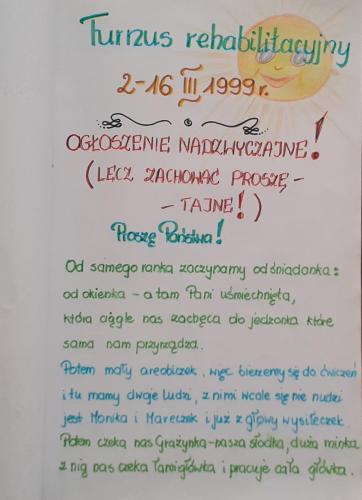 Turnus rehabilitacyjny
2-16 III 1999 r.
OGŁOSZENIE NADZWYCZAJNE!
(LECZ ZACHOWAĆ PROSZĘ -
- TAJNE!)
Proszę Państwa!
Od samego ranka zaczynamy od śniadanka:
od okienka - a tam Pani uśmiechnięta,
która ciągle nas zachęca do jedzonka które
sama nam przyrządza.
Potem mały areobiczek, więc bierzemy się do ćwiczeń
i tu mamy dwoje ludzi, z nimi wcale się nie nudzi
jest Monika i Mareczek i już z głowy wysiłeczek.
Potem czeka nas Grażynka-nasza słodka, duża minka
z nią nas czeka łamigłówka i pracuje cała główka.